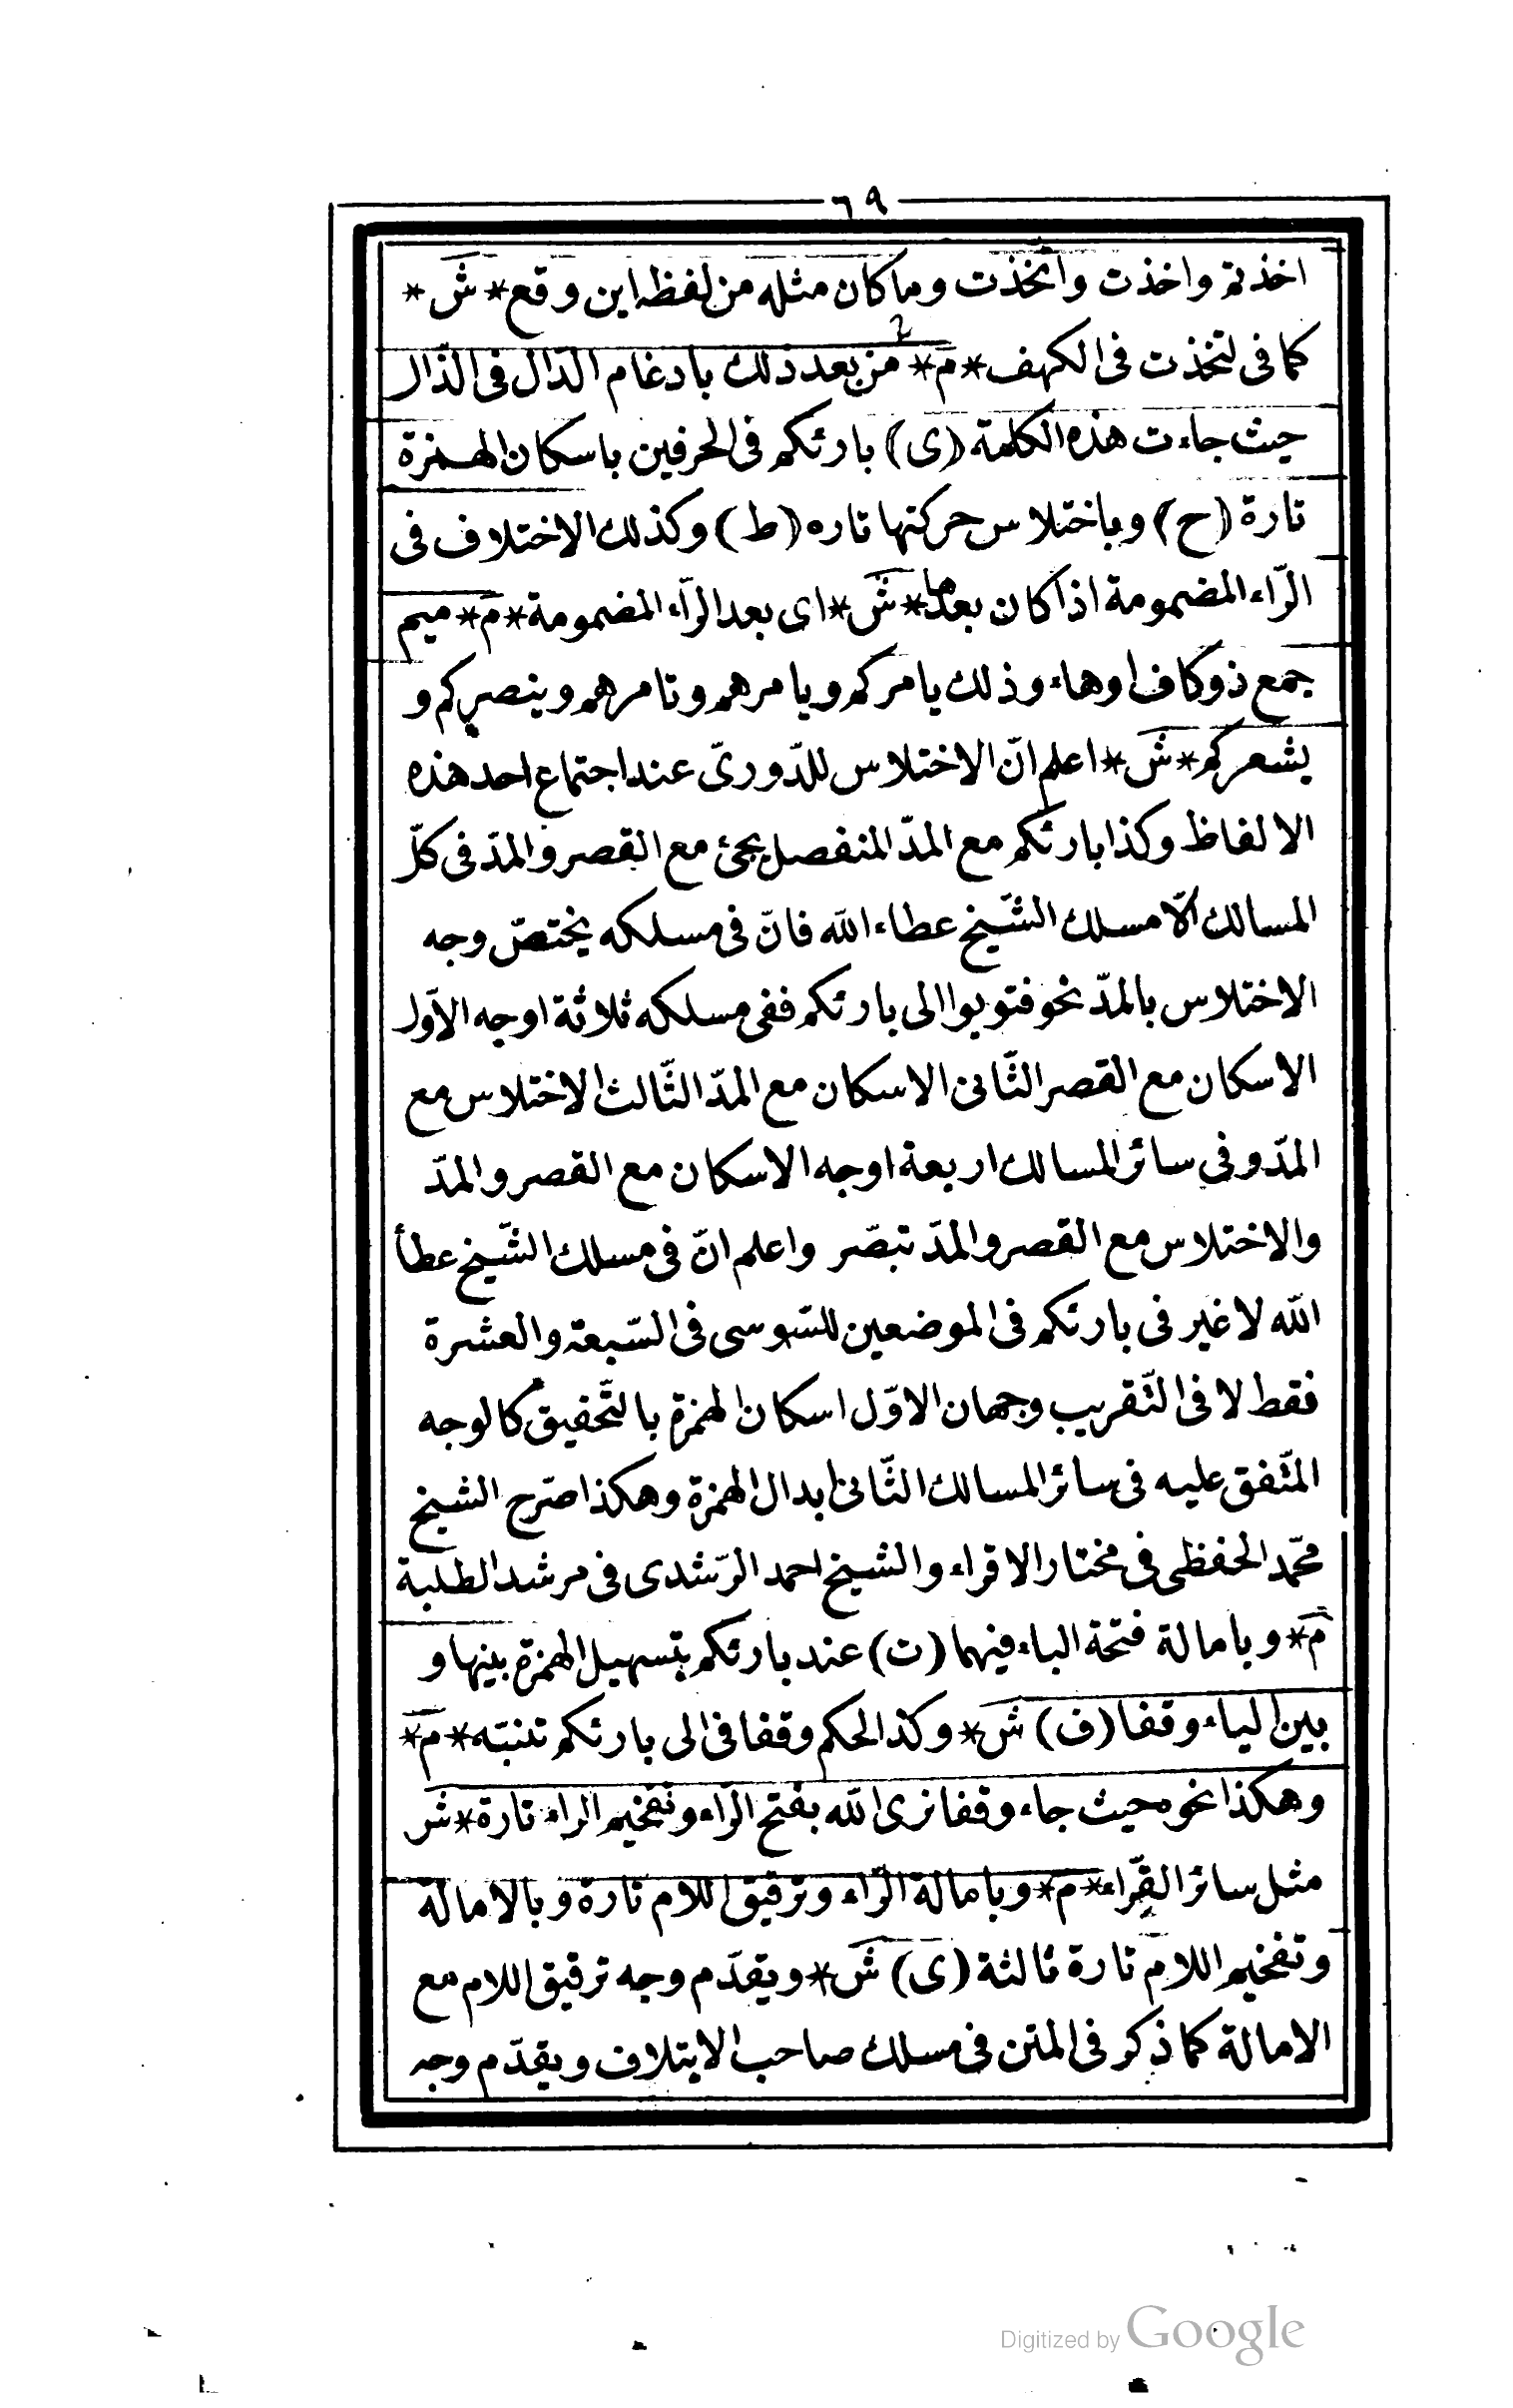 ٦٩
اخذتم واخذت واتّخذت وما كان مثله من لفظه اين وقع * ش *
كما فى لتخذت فى الكهف * م * من بعد ذلك بادغام الدّال فى الذّال
حيث جاءت هذه الكلمة (ى) بارئكم فى الحرفين باسكان الهمزة
تارة (ح) وباختلاس حركتها تاره (ط) وكذلك الاختلاف فى
الرّاء المضمومة اذا كان بعدها * ش * اى بعد الرّاء المضمومة * م * ميم
جمع ذو كاف او هاء وذلك يامركم ويامرهم وتامرهم وينصركم و
يشعركم * ش * اعلم انّ الاختلاس للدّورىّ عند اجتماع احد هذه
الالفاظ وكذا بارئكم مع المدّ المنفصل يجئ مع القصر والمدّ فى كلّ
المسالك الّا مسلك الشّيخ عطاء الله فانّ فى مسلكه يختصّ وجه
الاختلاس بالمدّ نحو فتوبوا الى بارئكم ففى مسلكه ثلاثة اوجه الاوّل
الاسكان مع القصر الثّانى الاسكان مع المدّ الثّالث الاختلاس مع
المدّ وفى سائر المسالك اربعة اوجه الاسكان مع القصر والمدّ
والاختلاس مع القصر والمدّ تبصّر واعلم انّ فى مسلك الشّيخ عطأ
الله لا غير فى بارئكم فى الموضعين للسّوسى فى السّبعة والعشرة
فقط لا فى التّقريب وجهان الاوّل اسكان الهمزة بالتّحقيق كالوجه
المتّفق عليه فى سائر المسالك الثّانى ابدال الهمزة وهكذا صرّح الشيخ
محّمد الحفظى فى مختار الاقراء والشيخ احمد الرّشدى فى مرشد الطلبة
م * وبامالة فتحة الباء فيهما (ت) عند بارئكم بتسهيل الهمزة بينها و
بين الياء وقفا (ف) ش * وكذ الحكم وقفا فى الى بارئكم تنبّه * م *
وهكذا نحوه حيث جاء وقفا نرى الله بفتح الرّاء وتفخيم الراء تارة * ش
مثل سائر القرّاء * م * وبامالة الرّاء وترقيق اللام تارة وبالامالة
وتفخيم اللام تارة ثالثة (ى) ش * ويقدّم وجه ترقيق اللام مع
الامالة كما ذكر فى المتن فى مسلك صاحب الايتلاف ويقدّم وجه
Digitized by Google